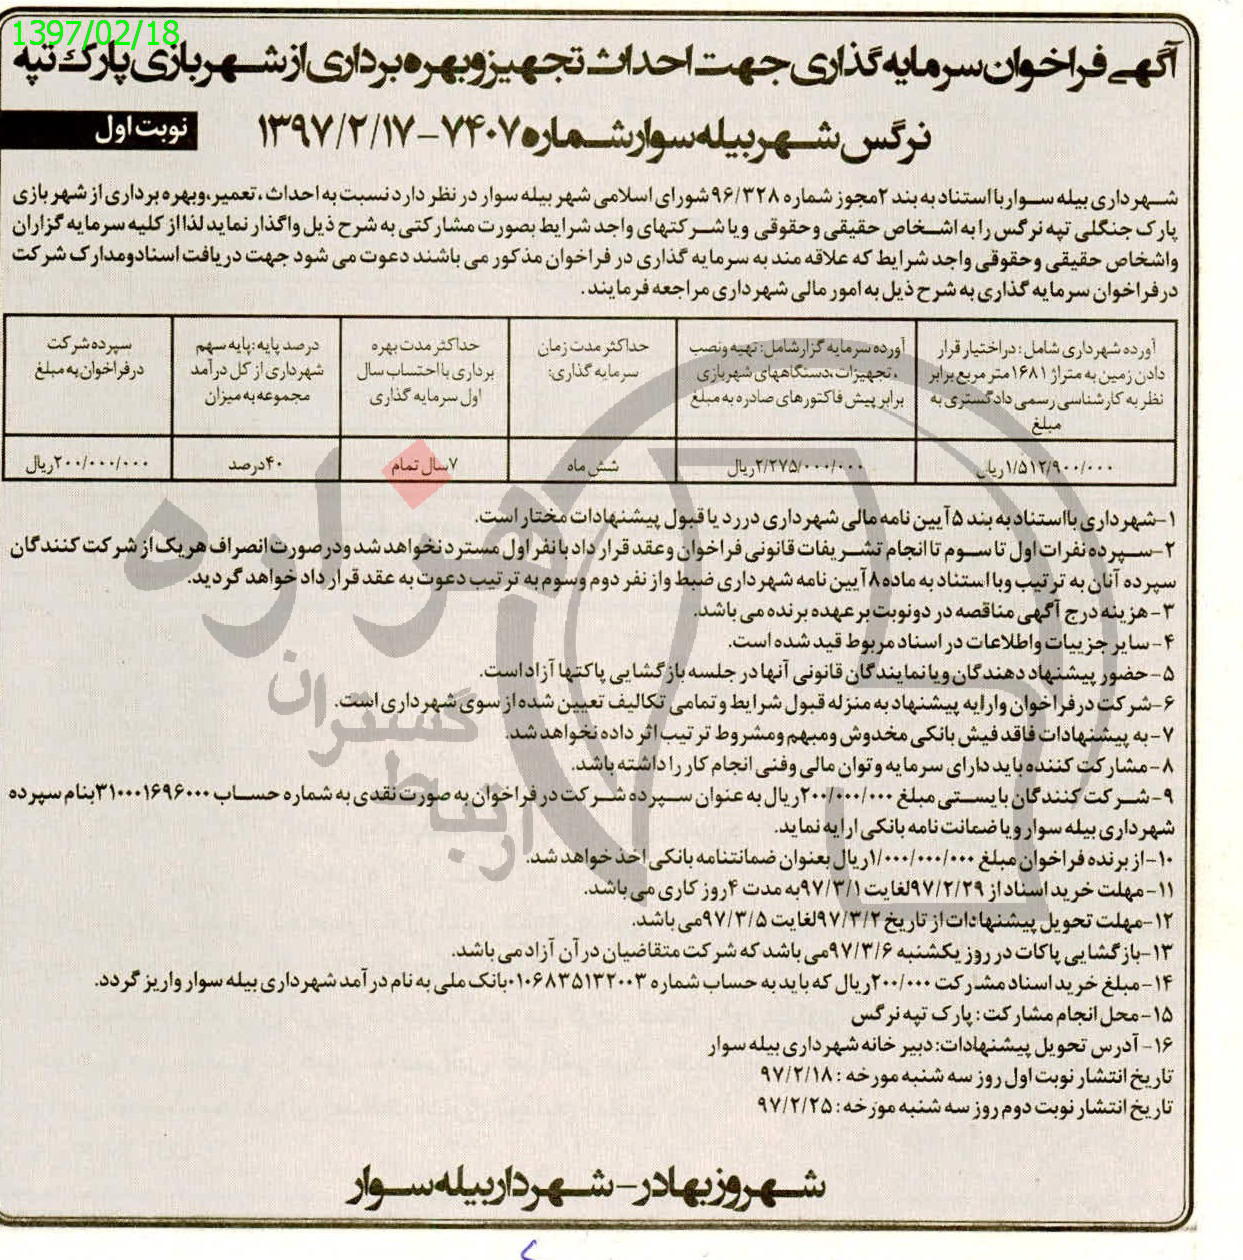 1397/02/18
آگهی فراخوان سرمایه گذاری جهت احداث تجهیز و بهره برداری از شهر بازی پارک تپه
نرگس شهر بیله سوار شماره ۷۴۰۷-۱۳۹۷/۲/۱۷
نوبت اول
شهرداری بیله سوار با استناد به بند ۲ مجوز شماره ۹۶/۳۲۸ شورای اسلامی شهر بیله سوار در نظر دارد نسبت به احداث ، تعمیر، وبهره برداری از شهر بازی
پارک جنگلی تپه نرگس را به اشخاص حقیقی وحقوقی ویا شرکتهای واجد شرایط بصورت مشارکتی به شرح ذیل واگذار نماید لذا از کلیه سرمایه گزاران
واشخاص حقیقی وحقوقی واجد شرایط که علاقه مند به سرمایه گذاری در فراخوان مذکور می باشند دعوت می شود جهت دریافت اسناد ومدارک شرکت
در فراخوان سرمایه گذاری به شرح ذیل به امور مالی شهرداری مراجعه فرمایند .
آورده شهرداری شامل : در اختیار قرار
دادن زمین به متراژ ۱۶۸۱ متر مربع برابر
نظر به کارشناسی رسمی دادگستری به
مبلغ
آورده سرمایه گزار شامل: تهیه ونصب
، تجهیزات، دستگاههای شهربازی
برابر پیش فاکتورهای صادره به مبلغ
حداکثر مدت زمان
سرمایه گذاری:
حداکثر مدت بهره
برداری با احتساب سال
اول سرمایه گذاری
درصد پایه :پایه سهم
شهرداری از کل درآمد
مجموعه به میزان
سپرده شرکت
در فراخوان به مبلغ
۱/۵۱۲/۹۰۰/۰۰۰ ریال
۲/۲۷۵/۰۰۰/۰۰۰ ریال
شش ماه
۷ سال تمام
۴۰ درصد
۲۰۰/۰۰۰/۰۰۰ ریال
۱-شهرداری بااستناد به بند ۵ آیین نامه مالی شهرداری در رد یا قبول پیشنهادات مختار است.
۲-سپرده نفرات اول تا سوم تا انجام تشریفات قانونی فراخوان وعقد قرار داد با نفر اول مسترد نخواهد شد ودر صورت انصراف هر یک از شرکت کنندگان
سپرده آنان به ترتیب وبا استناد به ماده ۸ آیین نامه شهرداری ضبط واز نفر دوم وسوم به ترتیب دعوت به عقد قرار داد خواهد گردید.
۳-هزینه درج آگهی مناقصه در دونوبت بر عهده برنده می باشد.
۴-سایر جزییات واطلاعات در اسناد مربوط قید شده است.
۵-حضور پیشنهاد دهندگان ویا نمایندگان قانونی آنها در جلسه بازگشایی پاکتها آزاد است.
۶-شرکت در فراخوان وارایه پیشنهاد به منزله قبول شرایط و تمامی تکالیف تعیین شده از سوی شهرداری است.
۷-به پیشنهادات فاقد فیش بانکی مخدوش ومبهم ومشروط ترتیب اثر داده نخواهد شد.
۸-مشارکت کننده باید دارای سرمایه و توان مالی وفنی انجام کار را داشته باشد.
۹-شرکت کنندگان بایستی مبلغ ۲۰۰/۰۰۰/۰۰۰ ریال به عنوان سپرده شرکت در فراخوان به صورت نقدی به شماره حساب ۳۱۰۰۰۱۶۹۶۰۰۰ بنام سپرده
شهرداری بیله سوار ویا ضمانت نامه بانکی ارایه نماید.
۱۰-از برنده فراخوان مبلغ ۱/۰۰۰/۰۰۰/۰۰۰ ریال بعنوان ضمانتنامه بانکی اخذ خواهد شد.
۱۱-مهلت خرید اسناد از ۹۷/۲/۲۹ لغایت ۹۷/۳/۱ به مدت ۴ روز کاری می باشد.
۱۲-مهلت تحویل پیشنهادات از تاریخ ۹۷/۳/۲ لغایت ۹۷/۳/۵ می باشد.
۱۳-بازگشایی پاکات در روز یکشنبه ۹۷/۳/۶ می باشد که شرکت متقاضیان در آن آزاد می باشد.
۱۴-مبلغ خرید اسناد مشارکت ۲۰۰/۰۰۰ ریال که باید به حساب شماره ۰۱۰۶۸۳۵۱۳۲۰۰۳ بانک ملی به نام درآمد شهرداری بیله سوار واریز گردد.
۱۵-محل انجام مشارکت : پارک تپه نرگس
۱۶-آدرس تحویل پیشنهادات: دبیر خانه شهرداری بیله سوار
تاریخ انتشار نوبت اول روز سه شنبه مورخه : ۹۷/۲/۱۸
تاریخ انتشار نوبت دوم روز سه شنبه مورخه : ۹۷/۲/۲۵
شهروز بهادر - شهردار بیله سوار
هزاره
گستران
ارتباط